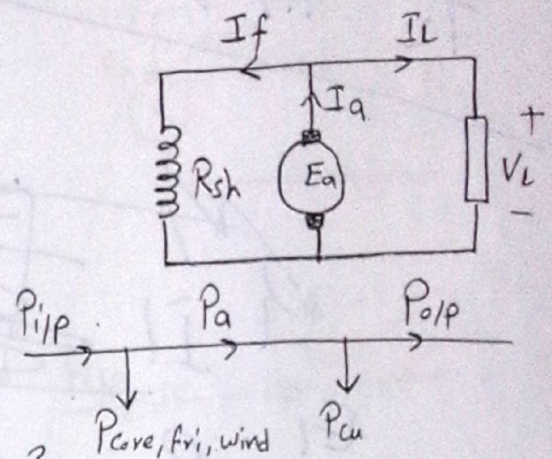 If IL
Ia
Rsh Ea + VL -
Pi/p Pa Po/p
Pcore, fri, wind Pcu